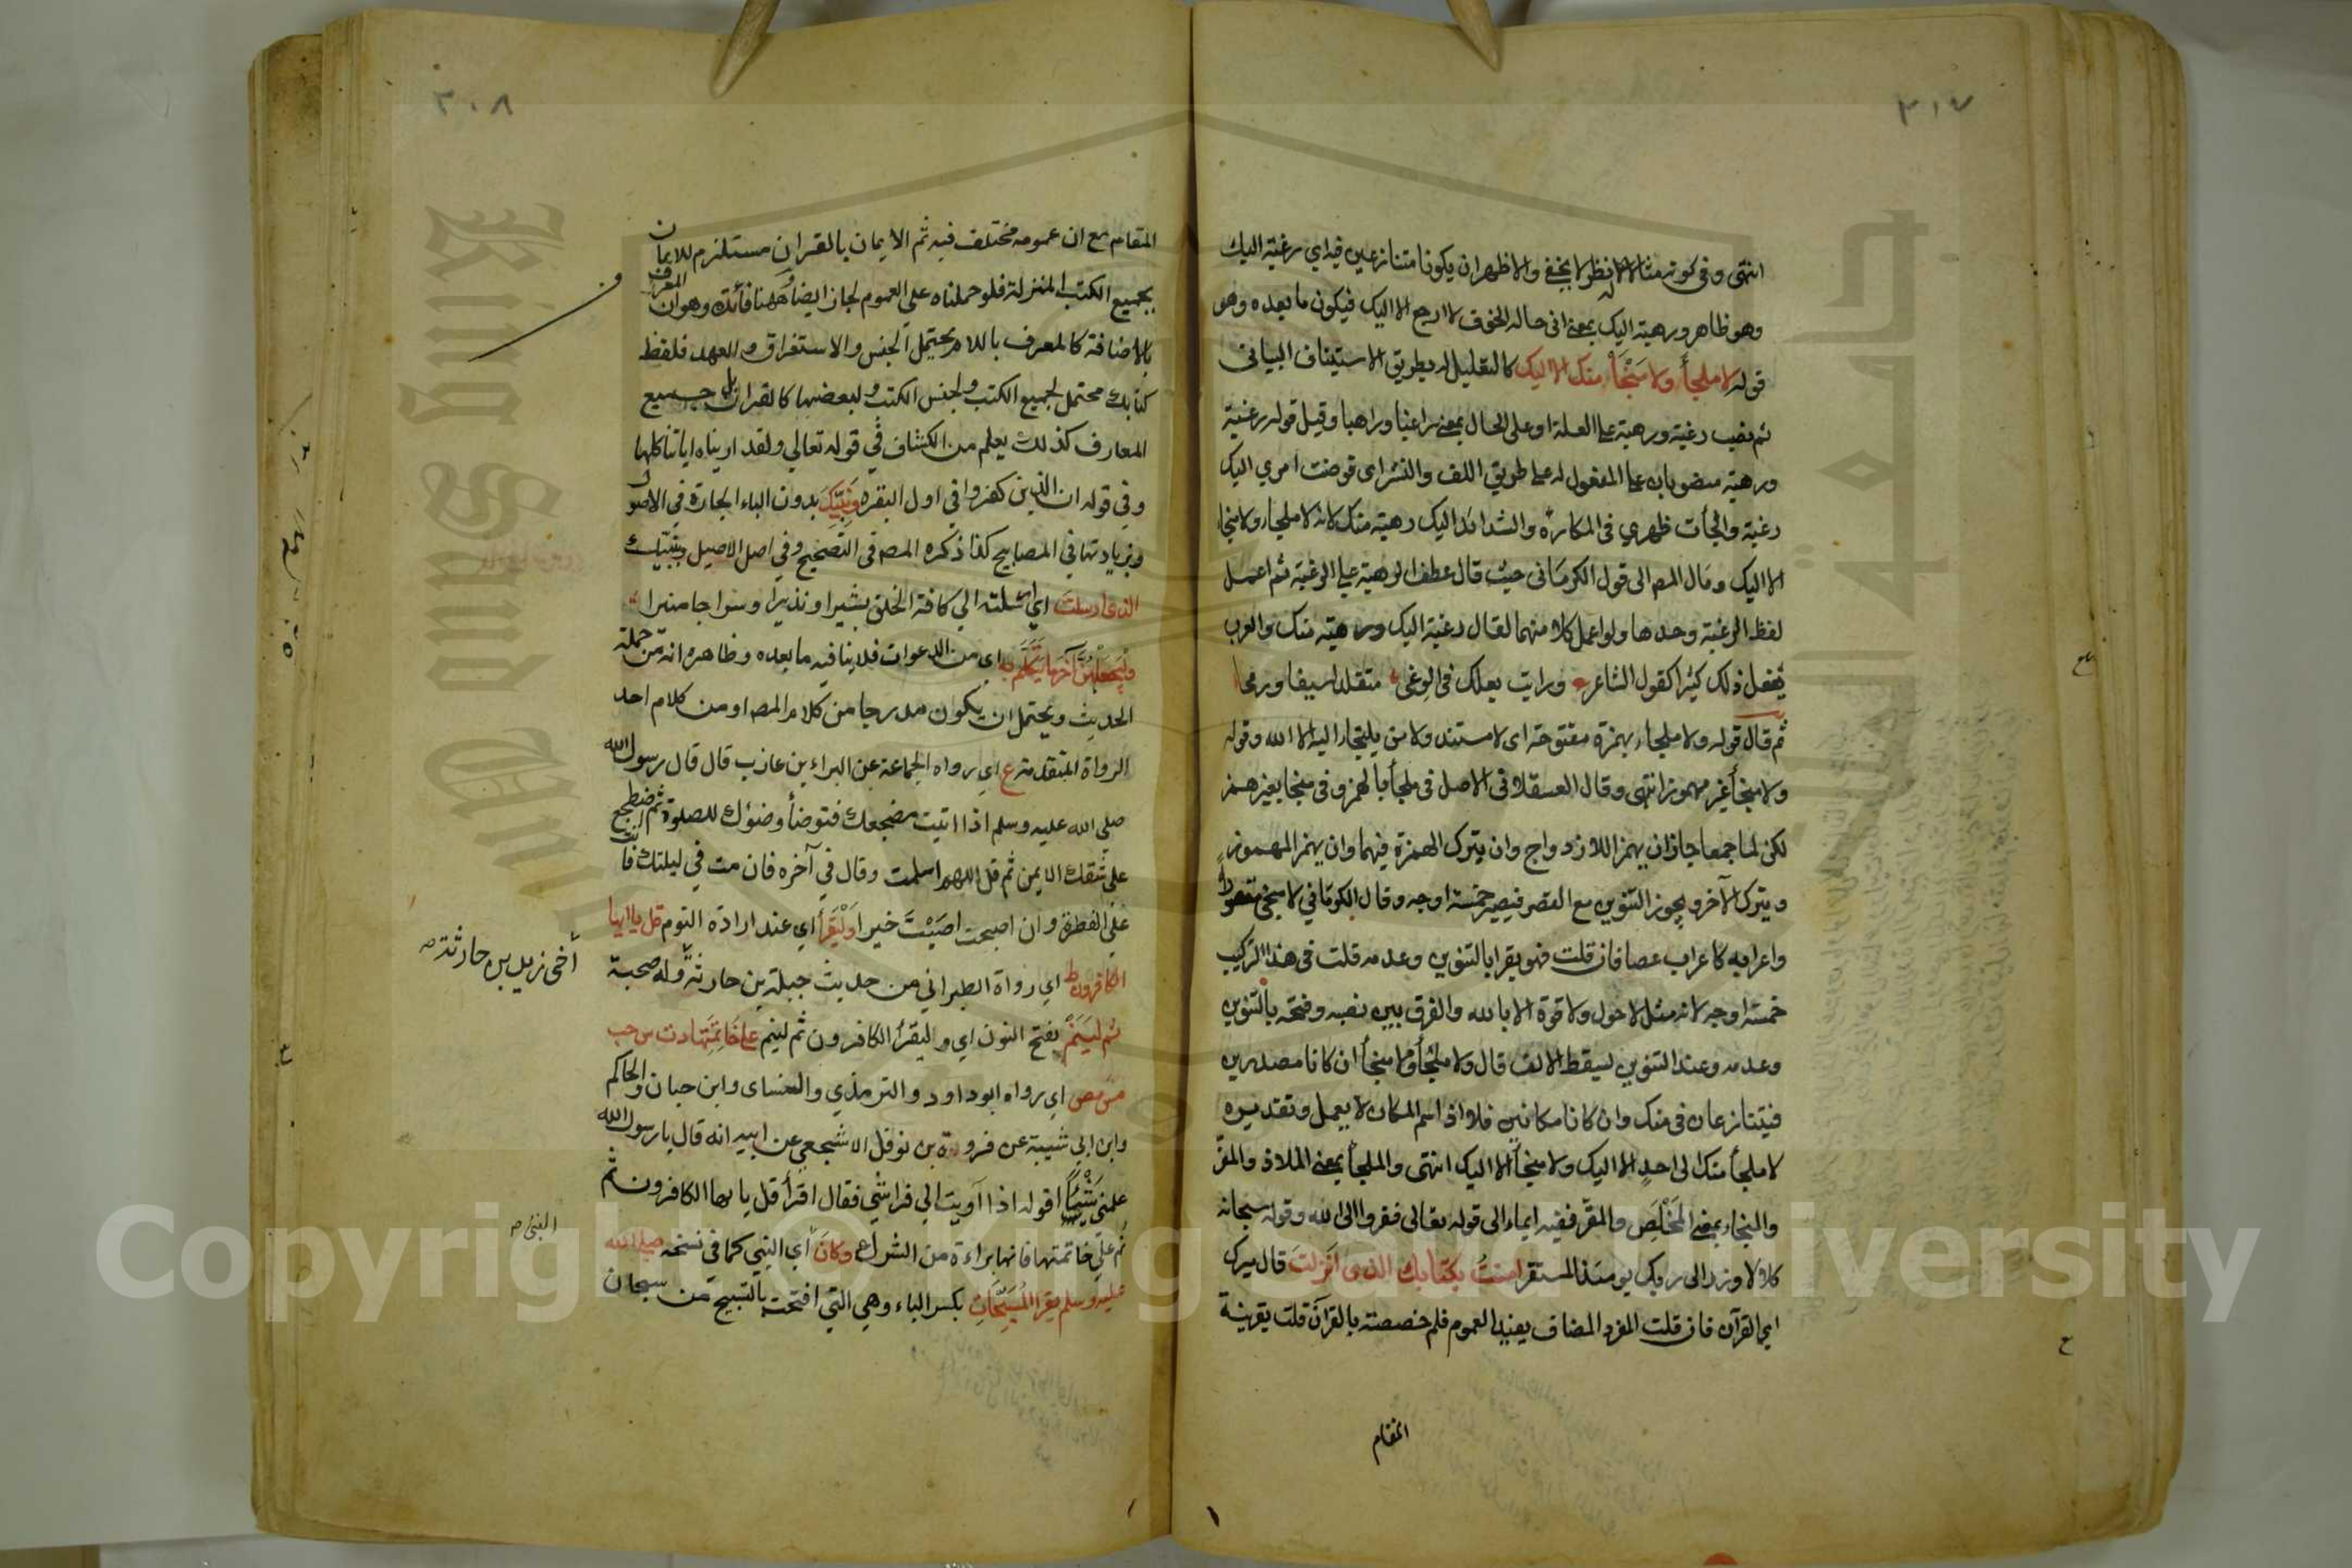 ٣١٧
انتهى وفي كونه مثالا له نظر لا يخفى والاظهر ان يكونا متنازعين فيه اي رغبة اليك
وهو ظاهر ورهبة اليك بمعنى اني حالة الخوف لا ارجع الا اليك فيكون ما بعده وهو
قوله لا ملجأ ولا منجأ منك الا اليك كالتعليل له بطريق الاستيناف البياني
ثم نصب رغبة ورهبة على العلة او على الحال بمعنى راغبا وراهبا وقيل قوله رغبة
ورهبة منصوبان على المفعول له على طريق اللف والنشر اى فوضت امري اليك
رغبة والجأت ظهري فى المكاره والشدائد اليك رهبة منك لانه لا ملجاء ولا منجا
الا اليك ومال المص الى قول الكرماني حيث قال عطف الرهبة على الرغبة ثم اعمل
لفظ الرغبة وحدها ولو اعمل كلا منهما لقال رغبة اليك ورهبة منك والعرب
يفعل ذلك كثيرا كقول الشاعر ورايت بعلك فى الوغى متقلدا سيفا ورمحا
ثم قال قوله ولا ملجاء بهمزة مفتوحة اى لا مستند ولا من يلتجاء اليه الا الله وقوله
ولا منجأ غير مهموز انتهى وقال العسقلاني الاصل فى ملجأ بالهمز وفى منجا بغير همز
لكن لما جمعا جاز ان يهمز للازدواج وان يترك الهمزة فيهما وان يهمز المهموز
ويترك الآخر ويجوز التنوين مع القصر فيصير خمسة اوجه وقال الكرماني لا منجى مقصور
واعرابه كاعراب عصا فان قلت فهو يقرا بالتنوين وعدمه قلت فى هذا التركيب
خمسة اوجه لانه مثل لا حول ولا قوة الا بالله والفرق بين نصبه وفتحه بالتنوين
وعدمه وعند التنوين يسقط الالف قال ولا ملجأ ولا منجأ ان كانا مصدرين
فيتنازعان فى منك وان كانا مكانين فلا اذ اسم المكان لا يعمل وتقديره
لا ملجأ منك الى احد الا اليك ولا منجأ الا اليك انتهى والملجأ بمعنى الملاذ والمفر
والمنجاء بمعنى المخلص والمقر ففيه ايماء الى قوله تعالى ففروا الى الله وقوله سبحانه
كلا لا وزر الى ربك يومئذ المستقر امنت بكتابك الذى انزلت قال ميرك
اي القرآن فان قلت المفرد المضاف يفيد العموم فلم خصصته بالقرآن قلت بقرينة
المقام
٣٠٨
المقام مع ان عمومه مختلف فيه ثم الايمان بالقران مستلزم للايمان
بجميع الكتب المنزلة فلو حملناه على العموم لجاز ايضا وههنا فائدة وهو ان المعرف
بالاضافة كالمعرف باللام يحتمل الجنس والاستغراق والعهد فلفظ
كتابك محتمل لجميع الكتب ولجنس الكتب ولبعضها كالقران بل جميع
المعارف كذلك يعلم من الكشاف في قوله تعالي ولقد اريناه اياتنا كلها
وفي قوله ان الذين كفروا في اول البقره ونبيك بدون الباء الجارة في الاصول
وبزيادتها في المصابيح كذا ذكره المص فى التصحيح وفي اصل الاصيل وبنبيك
الذى ارسلت اي ارسلته الي كافة الخلق بشيرا ونذيرا وسراجا منيرا
وليجعلهن آخر ما يتكلم به اي من الدعوات فلا ينافيه ما بعده وظاهره انه من جملة
الحديث ويحتمل ان يكون مدرجا من كلام المص او من كلام احد
الرواة المتقدمة ع اي رواه الجماعة عن البراء بن عازب قال قال رسول الله
صلى الله عليه وسلم اذا اتيت مضجعك فتوضأ وضوئك للصلوة ثم اضطجع
على شقك الايمن ثم قل اللهم اسلمت وقال في آخره فان مت في ليلتك فانت
على الفطرة وان اصبحت اصبت خيرا وليقرأ اي عند ارادة النوم قل يا ايها
الكافرون ط اي رواة الطبراني من حديث جبلة بن حارثة وله صحبة
أخى زيد بن حارثة صح
ثم لينم بفتح النون اي وليقرأ الكافرون ثم لينم على خاتمتها د ت س حب
مس مص اي رواه ابو داود والترمذي والنساى وابن حبان والحاكم
وابن ابي شيبة عن فروة بن نوفل الاشجعي عن ابيه انه قال يا رسول الله
علمني شيئا اقوله اذا آويت الي فراشي فقال اقرأ قل يا ايها الكافرون ثم
نم على خاتمتها فانها براءة من الشرك وكان أي النبي كما فى نسخه صلى الله
النبى صح
عليه وسلم يقرا المسبحات بكسر الباء وهي التي افتتحت بالتسبيح من سبحان
Copyright © King Saud University
King Saud University
جامعة